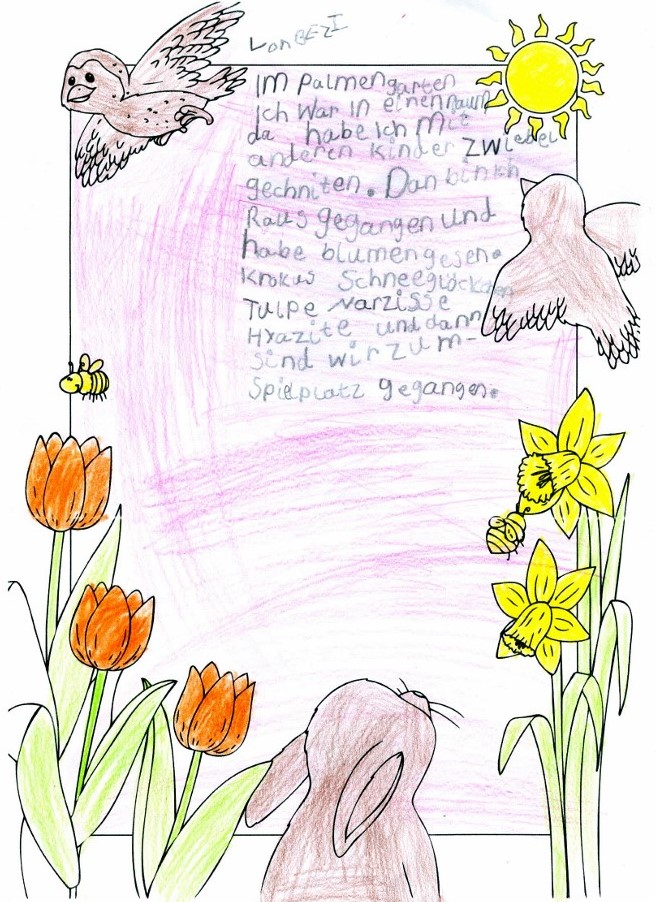 Von BEZI
IM Palmengarten
Ich War in einen raum
da habe Ich Mit
anderen Kinder ZWiebel
gechniten. Dan bin ich
Raus gegangen und
habe blumen gesen.
Krokus Schneeglöckchen
TulPe Narzisse
Hyazite und dann
Sind wir zum-
Spielplatz gegangen.